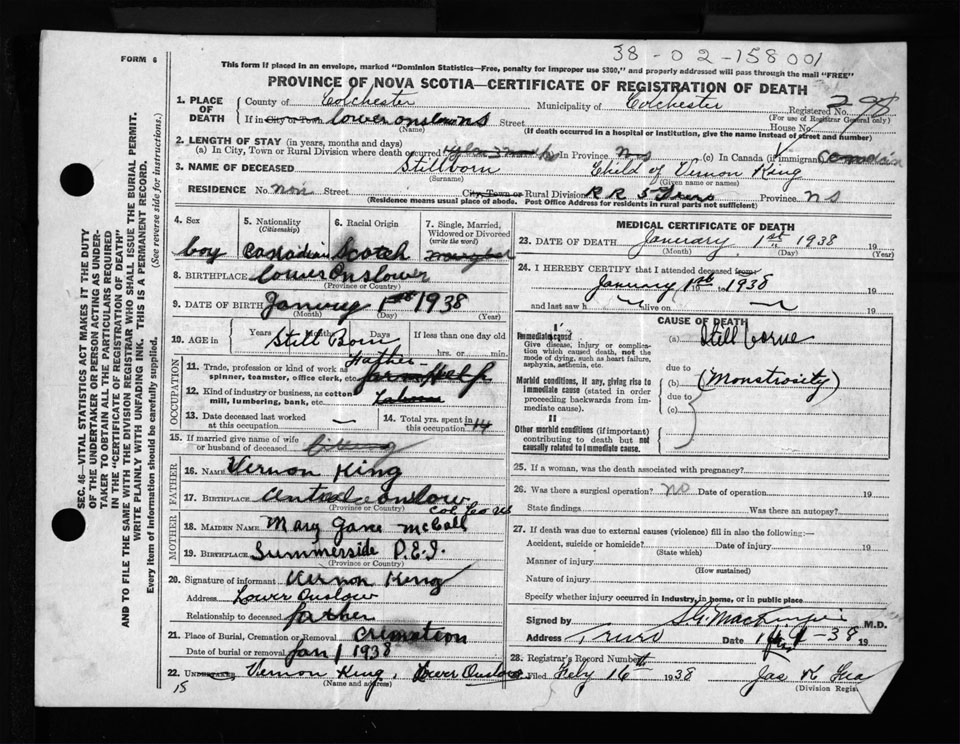 38-02-158001
FORM 6
This form if placed in an envelope, marked "Dominion Statistics—Free, penalty for improper use $300," and properly addressed will pass through the mail "FREE"
PROVINCE OF NOVA SCOTIA—CERTIFICATE OF REGISTRATION OF DEATH
1. PLACE OF DEATH
County of Colchester Municipality of Colchester Registered No. 298
(For use of Registrar General only)
If in City or Town Lower Onslow NS Street House No.
(Name) (If death occurred in a hospital or institution, give the name instead of street and number)
2. LENGTH OF STAY (in years, months and days)
(a) In City, Town or Rural Division where death occurred In Province NS (c) In Canada (if immigrant)
3. NAME OF DECEASED Stillborn Child of Vernon King
(Surname) (Given name or names)
RESIDENCE No. non Street City, Town or Rural Division R R 5 Truro Province NS
(Residence means usual place of abode. Post Office Address for residents in rural parts not sufficient)
4. Sex
boy
5. Nationality
(Citizenship)
Canadian
6. Racial Origin
Scotch
7. Single, Married, Widowed or Divorced
(write the word)
8. BIRTHPLACE Lower Onslower
(Province or Country)
9. DATE OF BIRTH January 1st 1938
(Month) (Day) (Year)
10. AGE in Years Months Days If less than one day old
Still Born hrs. or min.
OCCUPATION
Father
11. Trade, profession or kind of work as spinner, teamster, office clerk, etc. farm Help
12. Kind of industry or business, as cotton mill, lumbering, bank, etc.
13. Date deceased last worked at this occupation
14. Total yrs. spent in this occupation 14
15. If married give name of wife or husband of deceased
FATHER
16. Name Vernon King
17. Birthplace Central Onslow
(Province or Country) Col Co NS
MOTHER
18. Maiden Name Mary Jane McCall
19. Birthplace Summerside P.E.I.
(Province or Country)
20. Signature of informant Vernon King
Address Lower Onslow
Relationship to deceased father
21. Place of Burial, Cremation or Removal Cremation
Date of burial or removal Jan 1 1938
22. Undertaker Vernon King, Lower Onslow
(Name and address)
15
MEDICAL CERTIFICATE OF DEATH
23. DATE OF DEATH January 1st 1938 19
(Month) (Day) (Year)
24. I HEREBY CERTIFY that I attended deceased from
January 1st 19 to 1938 19
and last saw h alive on 19
CAUSE OF DEATH
I
Immediate cause
Give disease, injury or complication which caused death, not the mode of dying, such as heart failure, asphyxia, asthenia, etc.
(a) Still borne
due to
Morbid conditions, if any, giving rise to immediate cause (stated in order proceeding backwards from immediate cause).
(b) (Monstrosity)
due to
(c)
II
Other morbid conditions (if important) contributing to death but not causally related to immediate cause.
25. If a woman, was the death associated with pregnancy?
26. Was there a surgical operation? no Date of operation 19
State findings Was there an autopsy?
27. If death was due to external causes (violence) fill in also the following:—
Accident, suicide or homicide? Date of injury 19
(State which)
Manner of injury
(How sustained)
Nature of injury
Specify whether injury occurred in Industry, in home, or in public place
Signed by M.D.
Address Truro Date 19
28. Registrar's Record Number
Filed Feby 16 1938 Jas K
(Division Regis
SEC. 46—VITAL STATISTICS ACT MAKES IT THE DUTY
OF THE UNDERTAKER OR PERSON ACTING AS UNDERTAKER
TO OBTAIN ALL THE PARTICULARS REQUIRED
IN THE "CERTIFICATE OF REGISTRATION OF DEATH"
AND TO FILE THE SAME WITH THE DIVISION REGISTRAR WHO SHALL ISSUE THE BURIAL PERMIT.
WRITE PLAINLY WITH UNFADING INK. THIS IS A PERMANENT RECORD.
Every item of information should be carefully supplied. (See reverse side for instructions.)